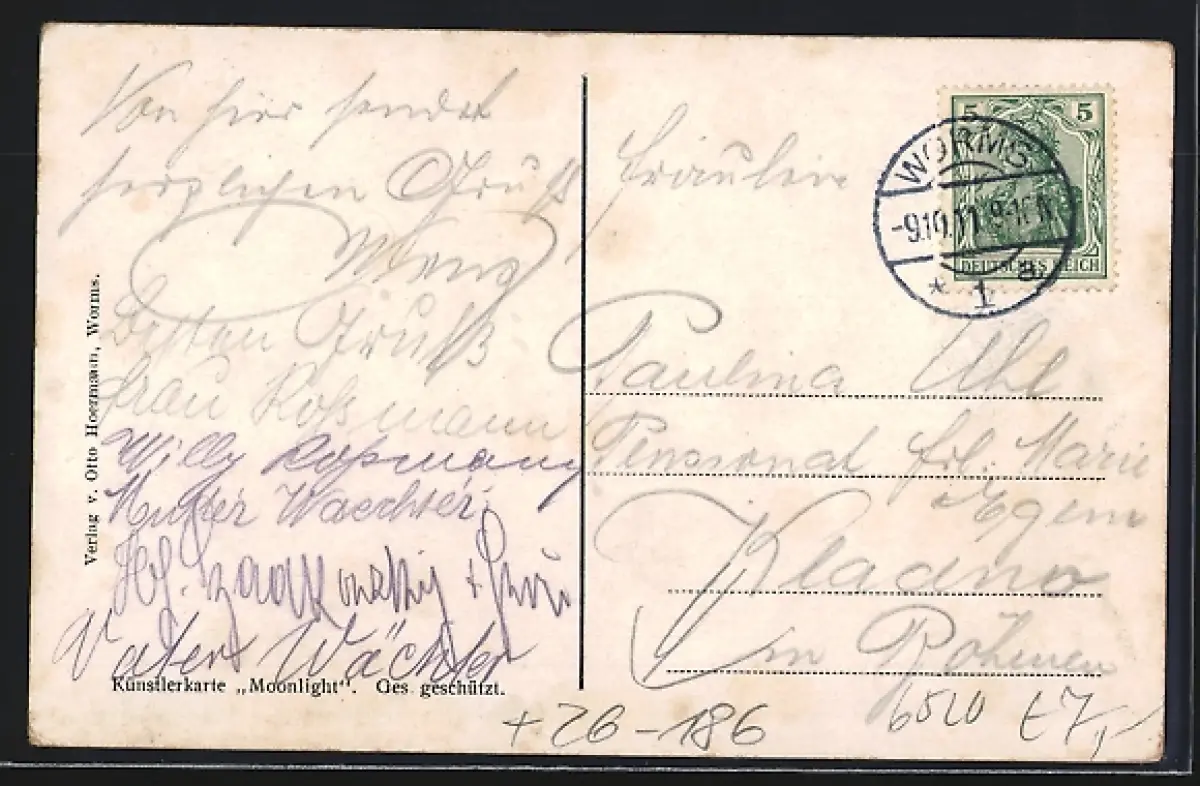 Von hier sendet
herzlichen Gruß
Besten Gruß
Frau Roßmann
Willy Roßmann
Mutter Waechter.
Vater Wächter
Verlag v. Otto Hoermann, Worms.
Künstlerkarte „Moonlight“. Ges geschützt.
5 5
DEUTSCHES REICH
WORMS
-9.10.11.9-10N
* 1 a
Fräulein
Paulina Uhl
Pensionat Frl. Marie
Kladno
in Böhmen
+26-186
6520 t7,-